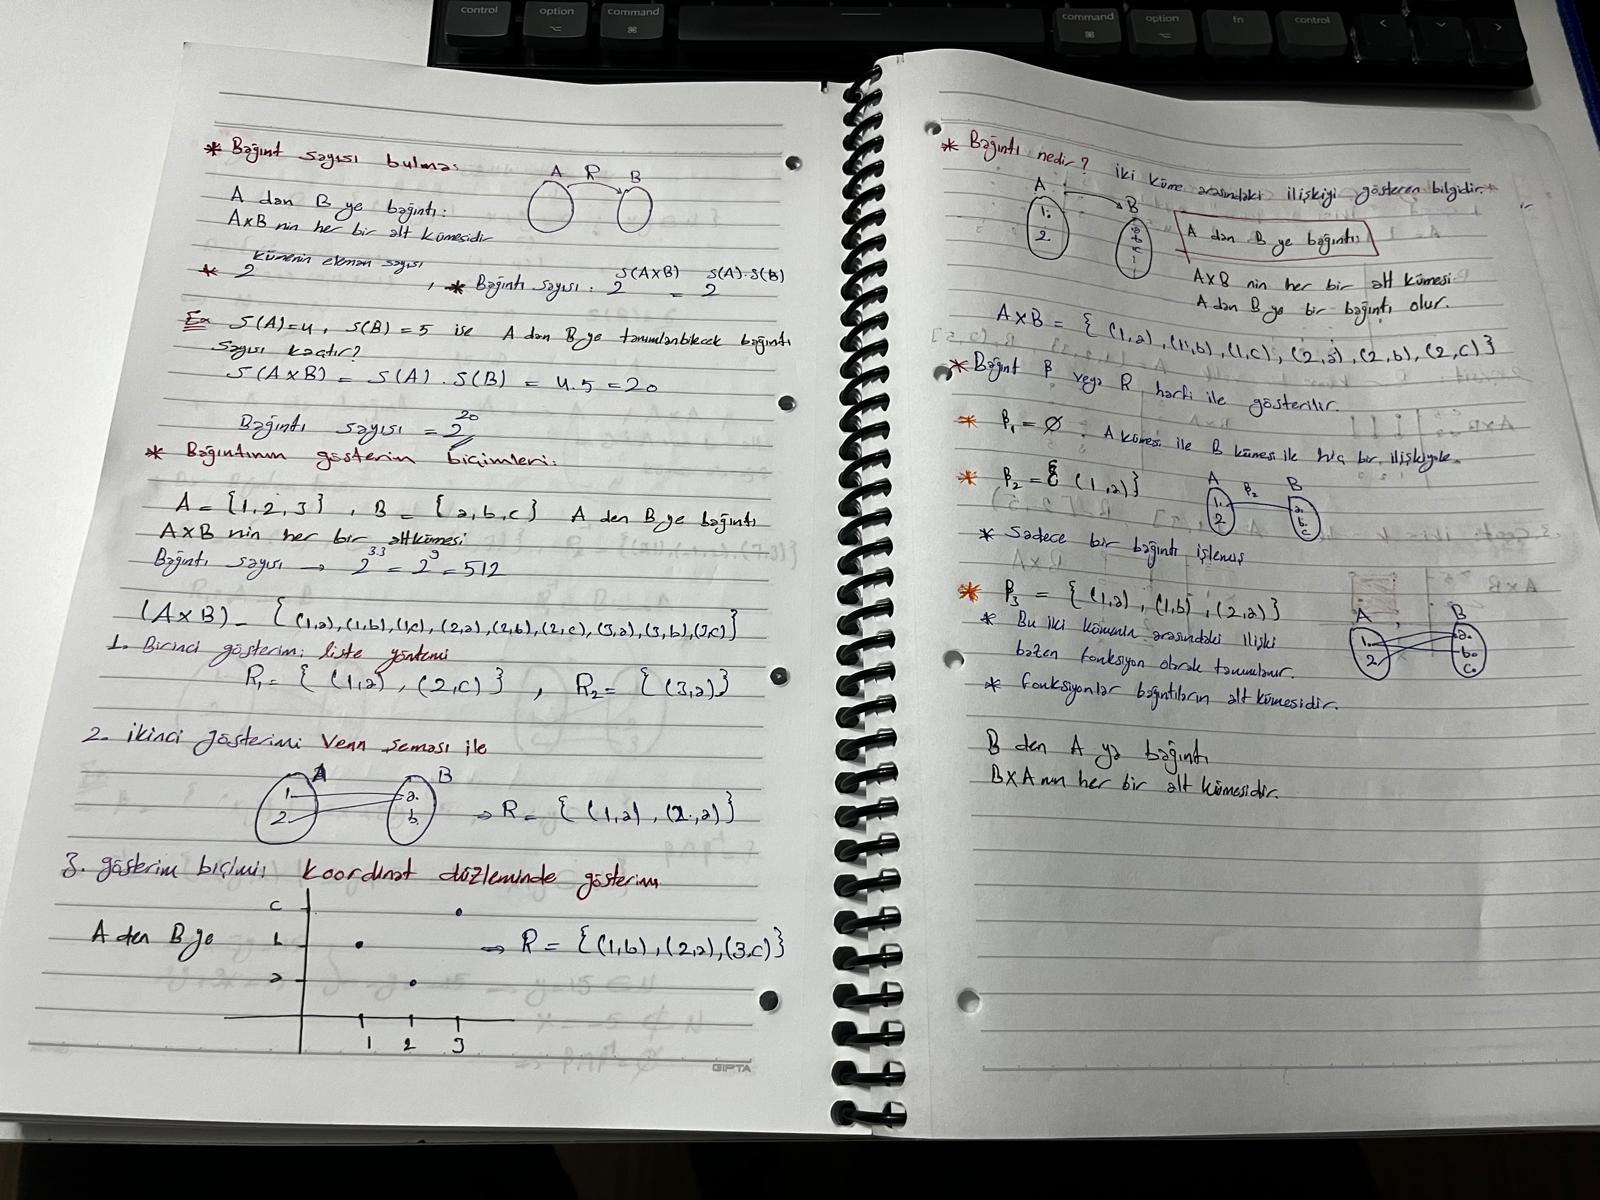 control
option
command
command
option
fn
control
* Bağınt sayısı bulma:
A R B
A dan B ye bağıntı:
AxB nin her bir alt kümesidir
* 2^kümenin eleman sayısı, * Bağıntı sayısı: 2^s(AxB) = 2^s(A).s(B)
Ex s(A)=4, s(B)=5 ise A dan B ye tanımlanbilecek bağıntı
sayısı kaçtır?
s(AxB) = s(A).s(B) = 4.5=20
Bağıntı sayısı = 2^20
* Bağıntının gösterim biçimleri:
A = {1,2,3}, B = {a,b,c} A den B ye bağıntı
AxB nin her bir altkümesi
Bağıntı sayısı → 2^3.3 = 2^9 = 512
(AxB) = {(1,a),(1,b),(1,c),(2,a),(2,b),(2,c),(3,a),(3,b),(3,c)}
1. Birinci gösterim: liste yöntemi
R₁ = {(1,a), (2,c)}, R₂ = {(3,a)}
2. ikinci gösterimi Venn şeması ile
A B
1. a.
2. b.
⇒ R = {(1,a), (2,a)}
3. gösterim biçimi: koordinat düzleminde gösterimi
c
A den B ye b ⇒ R = {(1,b),(2,a),(3,c)}
a
1 2 3
GIPTA
* Bağıntı nedir? iki küme arasındaki ilişkiyi gösteren bilgidir.*
A B
1.
2.
A dan B ye bağıntı
AxB nin her bir alt kümesi
A dan B ye bir bağıntı olur.
AxB = {(1,a),(1,b),(1,c),(2,a),(2,b),(2,c)}
* Bağınt β veya R harfi ile gösterilir.
* β₁ = ∅ : A kümesi ile B kümesi ile hiç bir ilişkiyok.
* β₂ = {(1,a)}
A β₂ B
1. a.
2 b.
c
* Sadece bir bağıntı işlemiş
* β₃ = {(1,a), (1,b), (2,a)}
A B
1. a.
2. b.
c.
* Bu iki kümenin arasındaki ilişki
bazen fonksiyon olarak tanımlanır.
* Fonksiyonlar bağıntıların alt kümesidir.
B den A ya bağıntı
BxA nın her bir alt kümesidir.